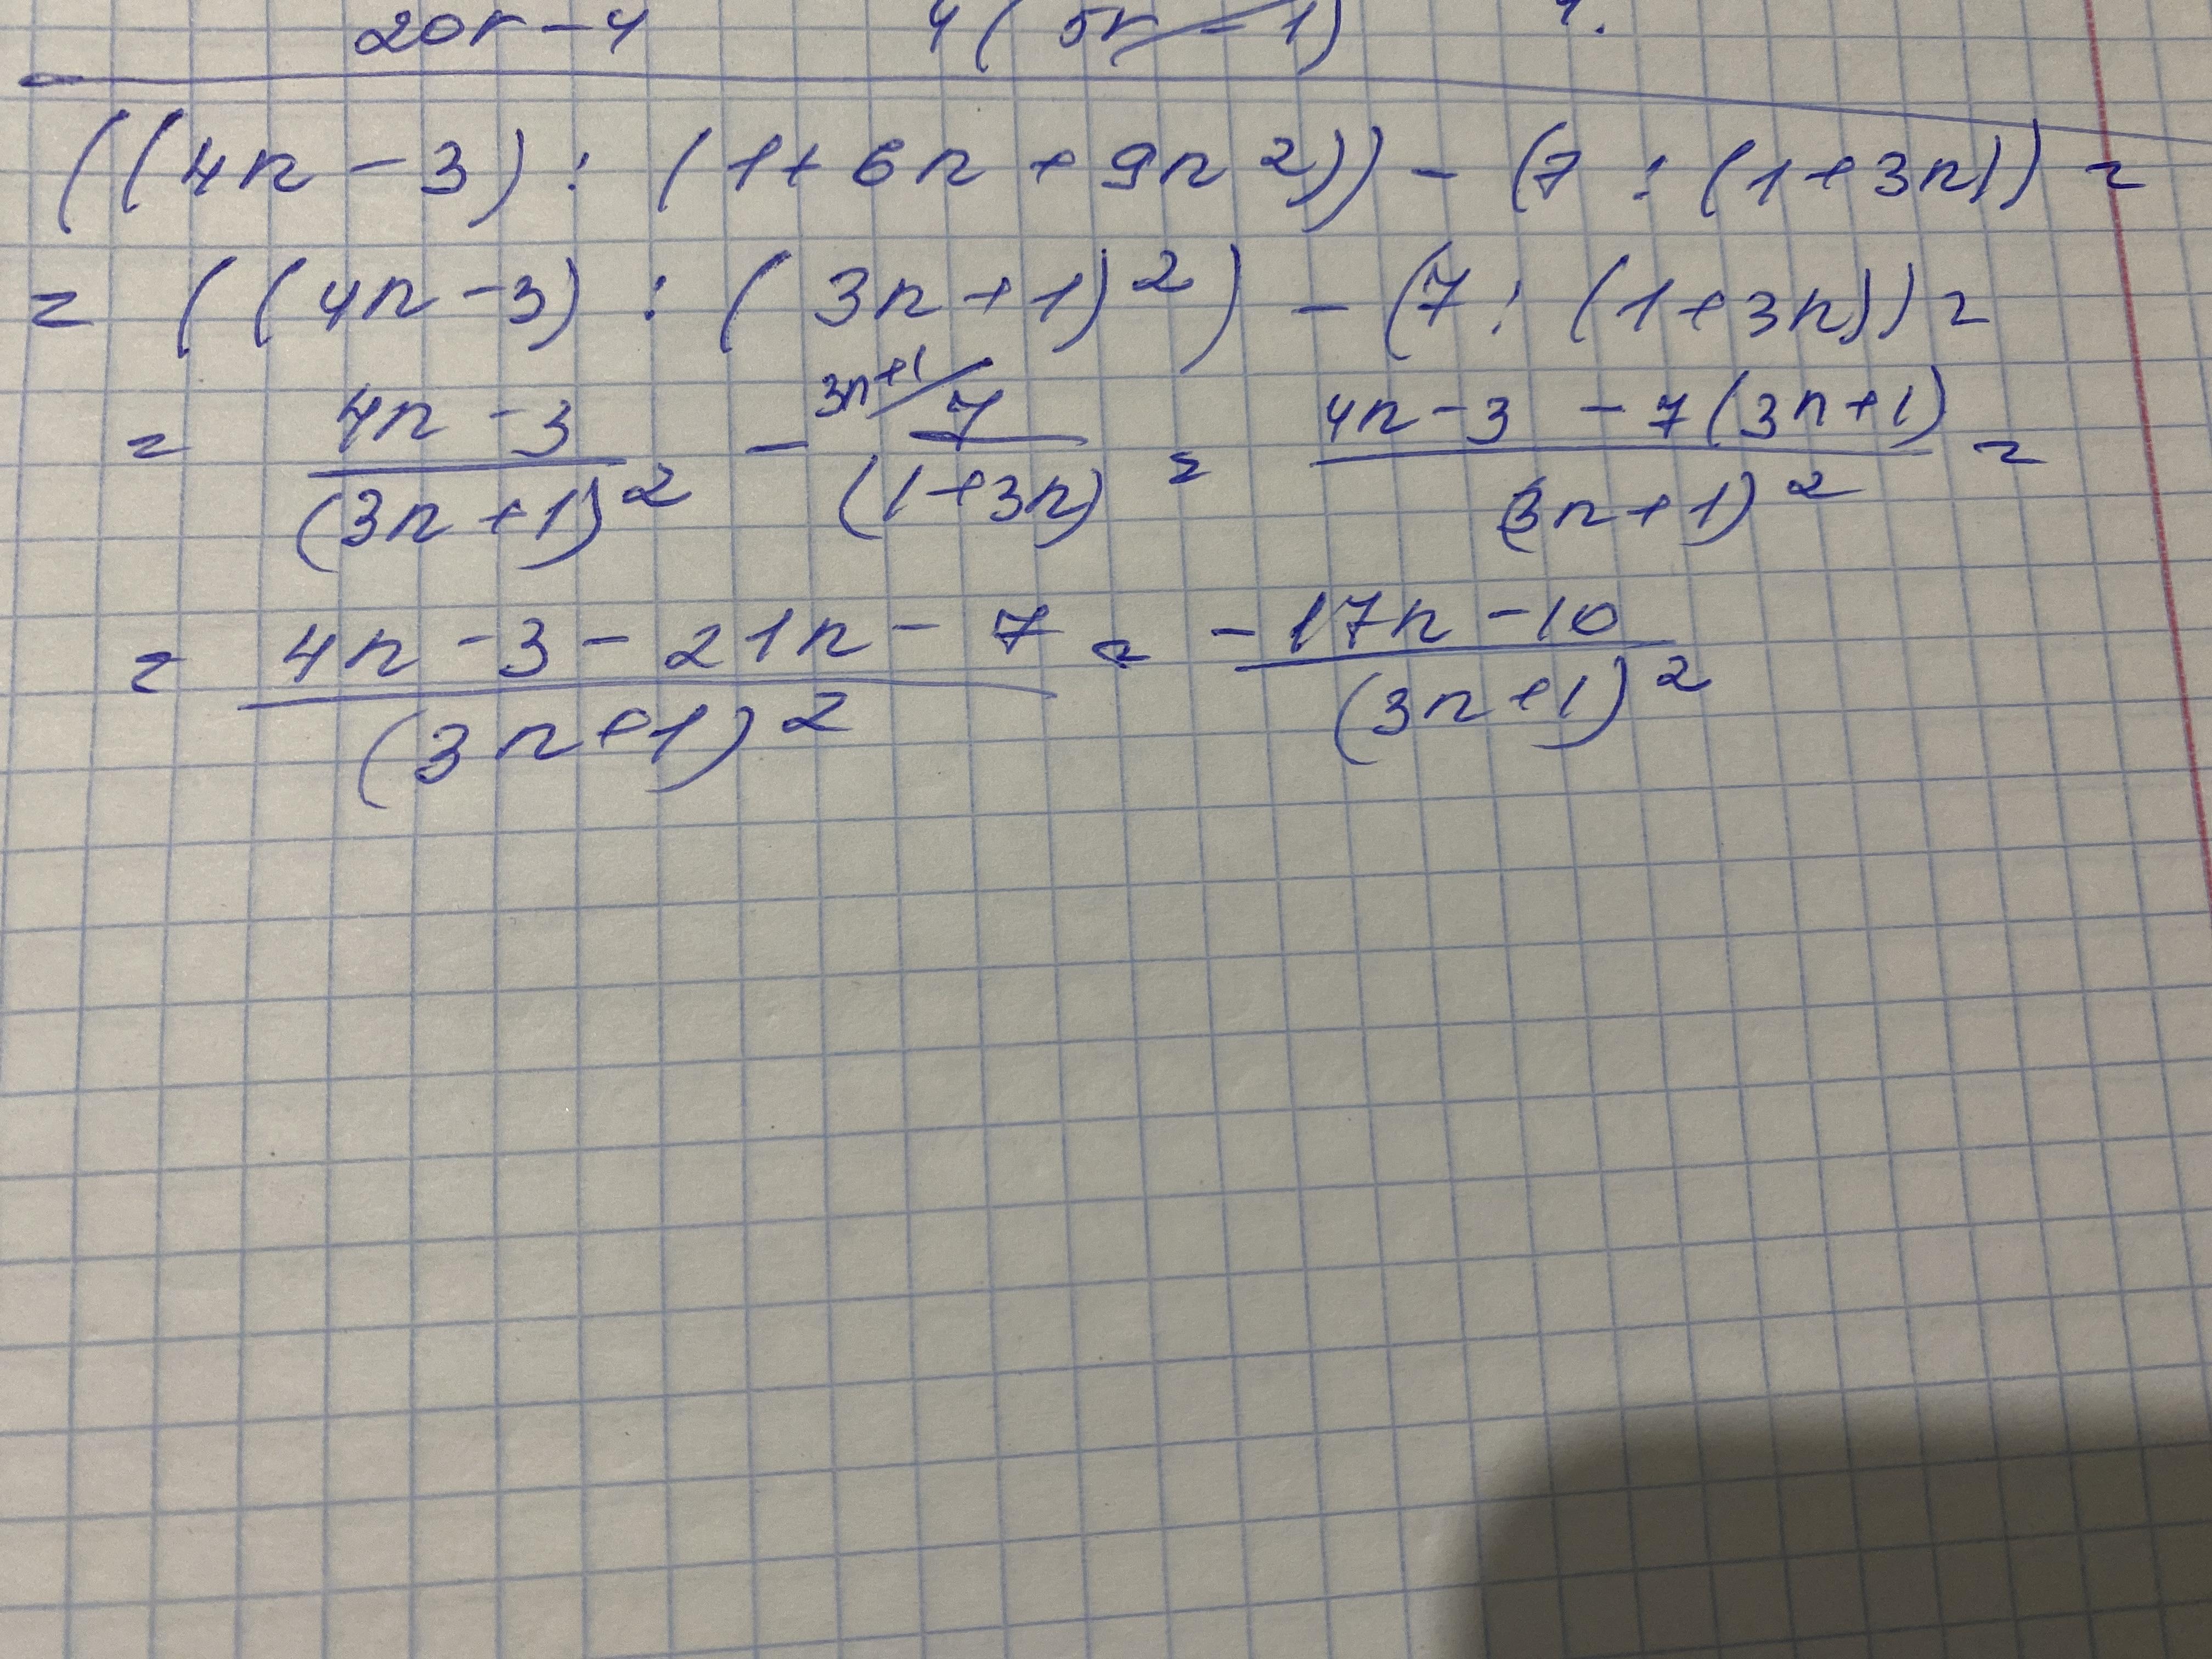 20r - 4 4(5r - 1) 4.
((4n - 3) : (1 + 6n + 9n 2)) - (7 : (1 + 3n)) =
= ((4n - 3) : (3n + 1)²) - (7 : (1 + 3n)) =
= (4n - 3)/(3n + 1)² - 3n+1/ 7/(1 + 3n) = (4n - 3 - 7(3n + 1))/(3n + 1)² =
= (4n - 3 - 21n - 7)/(3n + 1)² = (-17n - 10)/(3n + 1)²